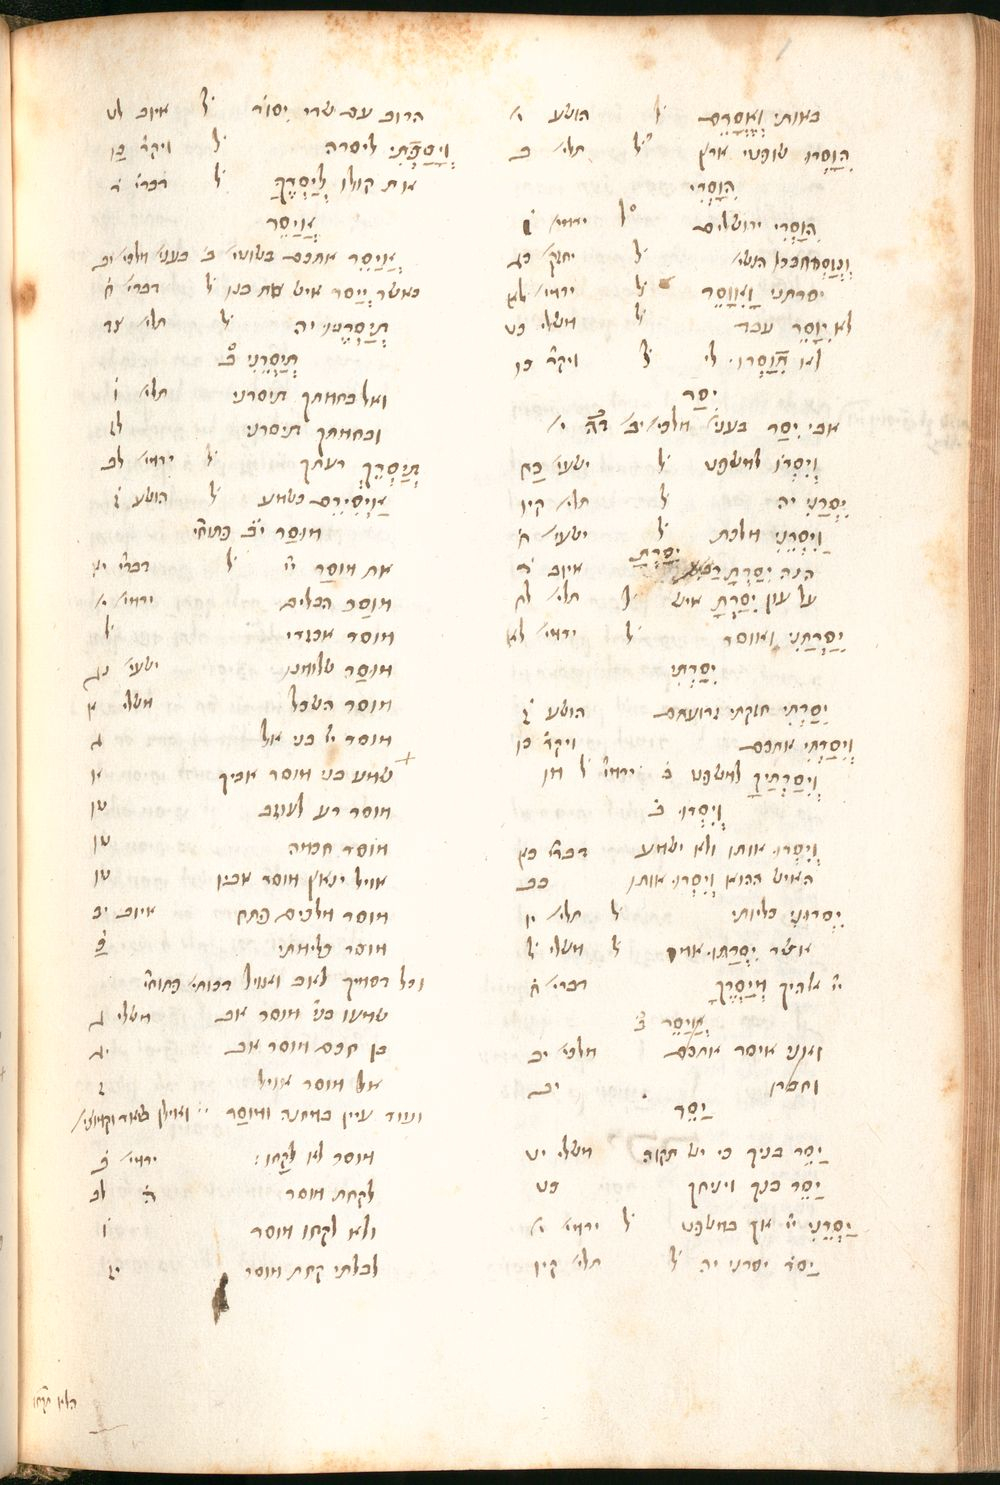 באותי וְאֶסֳּרֵם ל׳ הושע י׳
הִוָּסְרוּ שופטי ארץ ל׳ תלי׳ ב
הִוָּסְרִי
הִוָּסְרִי ירושלים ל׳ ירמי׳ ו
וְנִוַּסְּרוּ כל הנשי׳ ל׳ יחזק׳ כג
יסרתני וָאִוָּסֵר ל׳ ירמי׳ לא
לא יִוָּסֶר עבד ל׳ משלי כט
לא תִוָּסְרוּ לי ל׳ ויקר׳ כו
יִסַּר
אבי יִסַּר בעני׳ מלכי׳ יב דה׳ י׳
וְיִסְּרוֹ למשפט ל׳ ישעי׳ כח
יִסְּרַנִּי יה ל׳ תלי׳ קיו
וְיִסְּרֵנִי מלכת ל׳ ישעי׳ ח
יִסַּרְתָּ
הנה יִסַּרְתָּ רבים איוב ד
על עון יִסַּרְתָּ איש ל׳ תלי׳ לח
יִסַּרְתַּנִי ואוסר ל׳ ירמי׳ לא
יִסַּרְתִּי
יִסַּרְתִּי חזקתי זרועתם הושע ז
וְיִסַּרְתִּי אתכם ויקר׳ כו
וְיִסַּרְתִּיךָ למשפט ב׳ ירמי׳ ל מו
וְיִסְּרוּ ב׳
וְיִסְּרוּ אותו ולא ישמע דברי׳ כא
האיש ההוא וְיִסְּרוּ אותו כב
יִסְּרוּנִי כליותי ל׳ תלי׳ יו
אשר יִסְּרַתּוּ אמו ל׳ משלי ל׳
יי׳ אלהיך מְיַסְּרֶךָּ דברי׳ ח
אֲיַסֵּר ב׳
ואני איסר אתכם מלכי׳ יב
וחברו יב
יַסֵּר
יַסֵּר בניך כי יש תקוה משלי יט
יַסֵּר בנך ויניחך כט
יַסְּרֵנִי יי׳ אך במשפט ל׳ ירמי׳ י׳
יַסֹּר יסרני יה ל׳ תלי׳ קיו
הרוב עם שדי יִסּוֹר ל׳ איוב לט
וְיִסַּרְתִּי ליסרה ל׳ ויקר׳ כו
את קולו לְיַסְּרֶךָּ ל׳ דברי׳ ד
אֲיַסֵּר
אֲיַסֵּר אתכם בשוטי׳ ב׳ בעני׳ מלכי׳ יב
כאשר יְיַסֵּר איש את בנו ל׳ דברי׳ ח
תְּיַסְּרֶנּוּ יה ל׳ תלי׳ צד
תְיַסְּרֵנִי ב׳
ואל בחמתך תיסרני תלי׳ ו
ובחמתך תיסרני לח
תְּיַסְּרֵךְ רעתך ל׳ ירמי׳ לב
אַיְסִירֵם כשמע ל׳ הושע ז
מוּסַר יב׳ פתוחי׳
את מוסַר יי׳ ל׳ דברי׳ יא
מוסַר הבלים ירמי׳ י׳
מוסר אכזרי ל׳
מוסַר שלומנו ישעי׳ נג
מוסר השכל משלי א
מוסר יי׳ בני אל ג
שמע בני מוסר אביך א
מוסר רע לעוזב טו
מוסר חכמה טו
אויל ינאץ מוסר אביו טו
מוסר מלכים פתח איוב יב
מוסר כלימתי כ
וכל דסמיך לאב ואויל דכותי׳ פתוחי׳
שמעו בני׳ מוסר אב משלי ד
בן חכם מוסר אב יג
אל מוסר אויל ז
מוסר לא לקחו: ירמי׳ ב
לקחת מוסר ה לב
ולא לקחו מוסר ז
לבלתי קחת מוסר יז
הלא תקחו